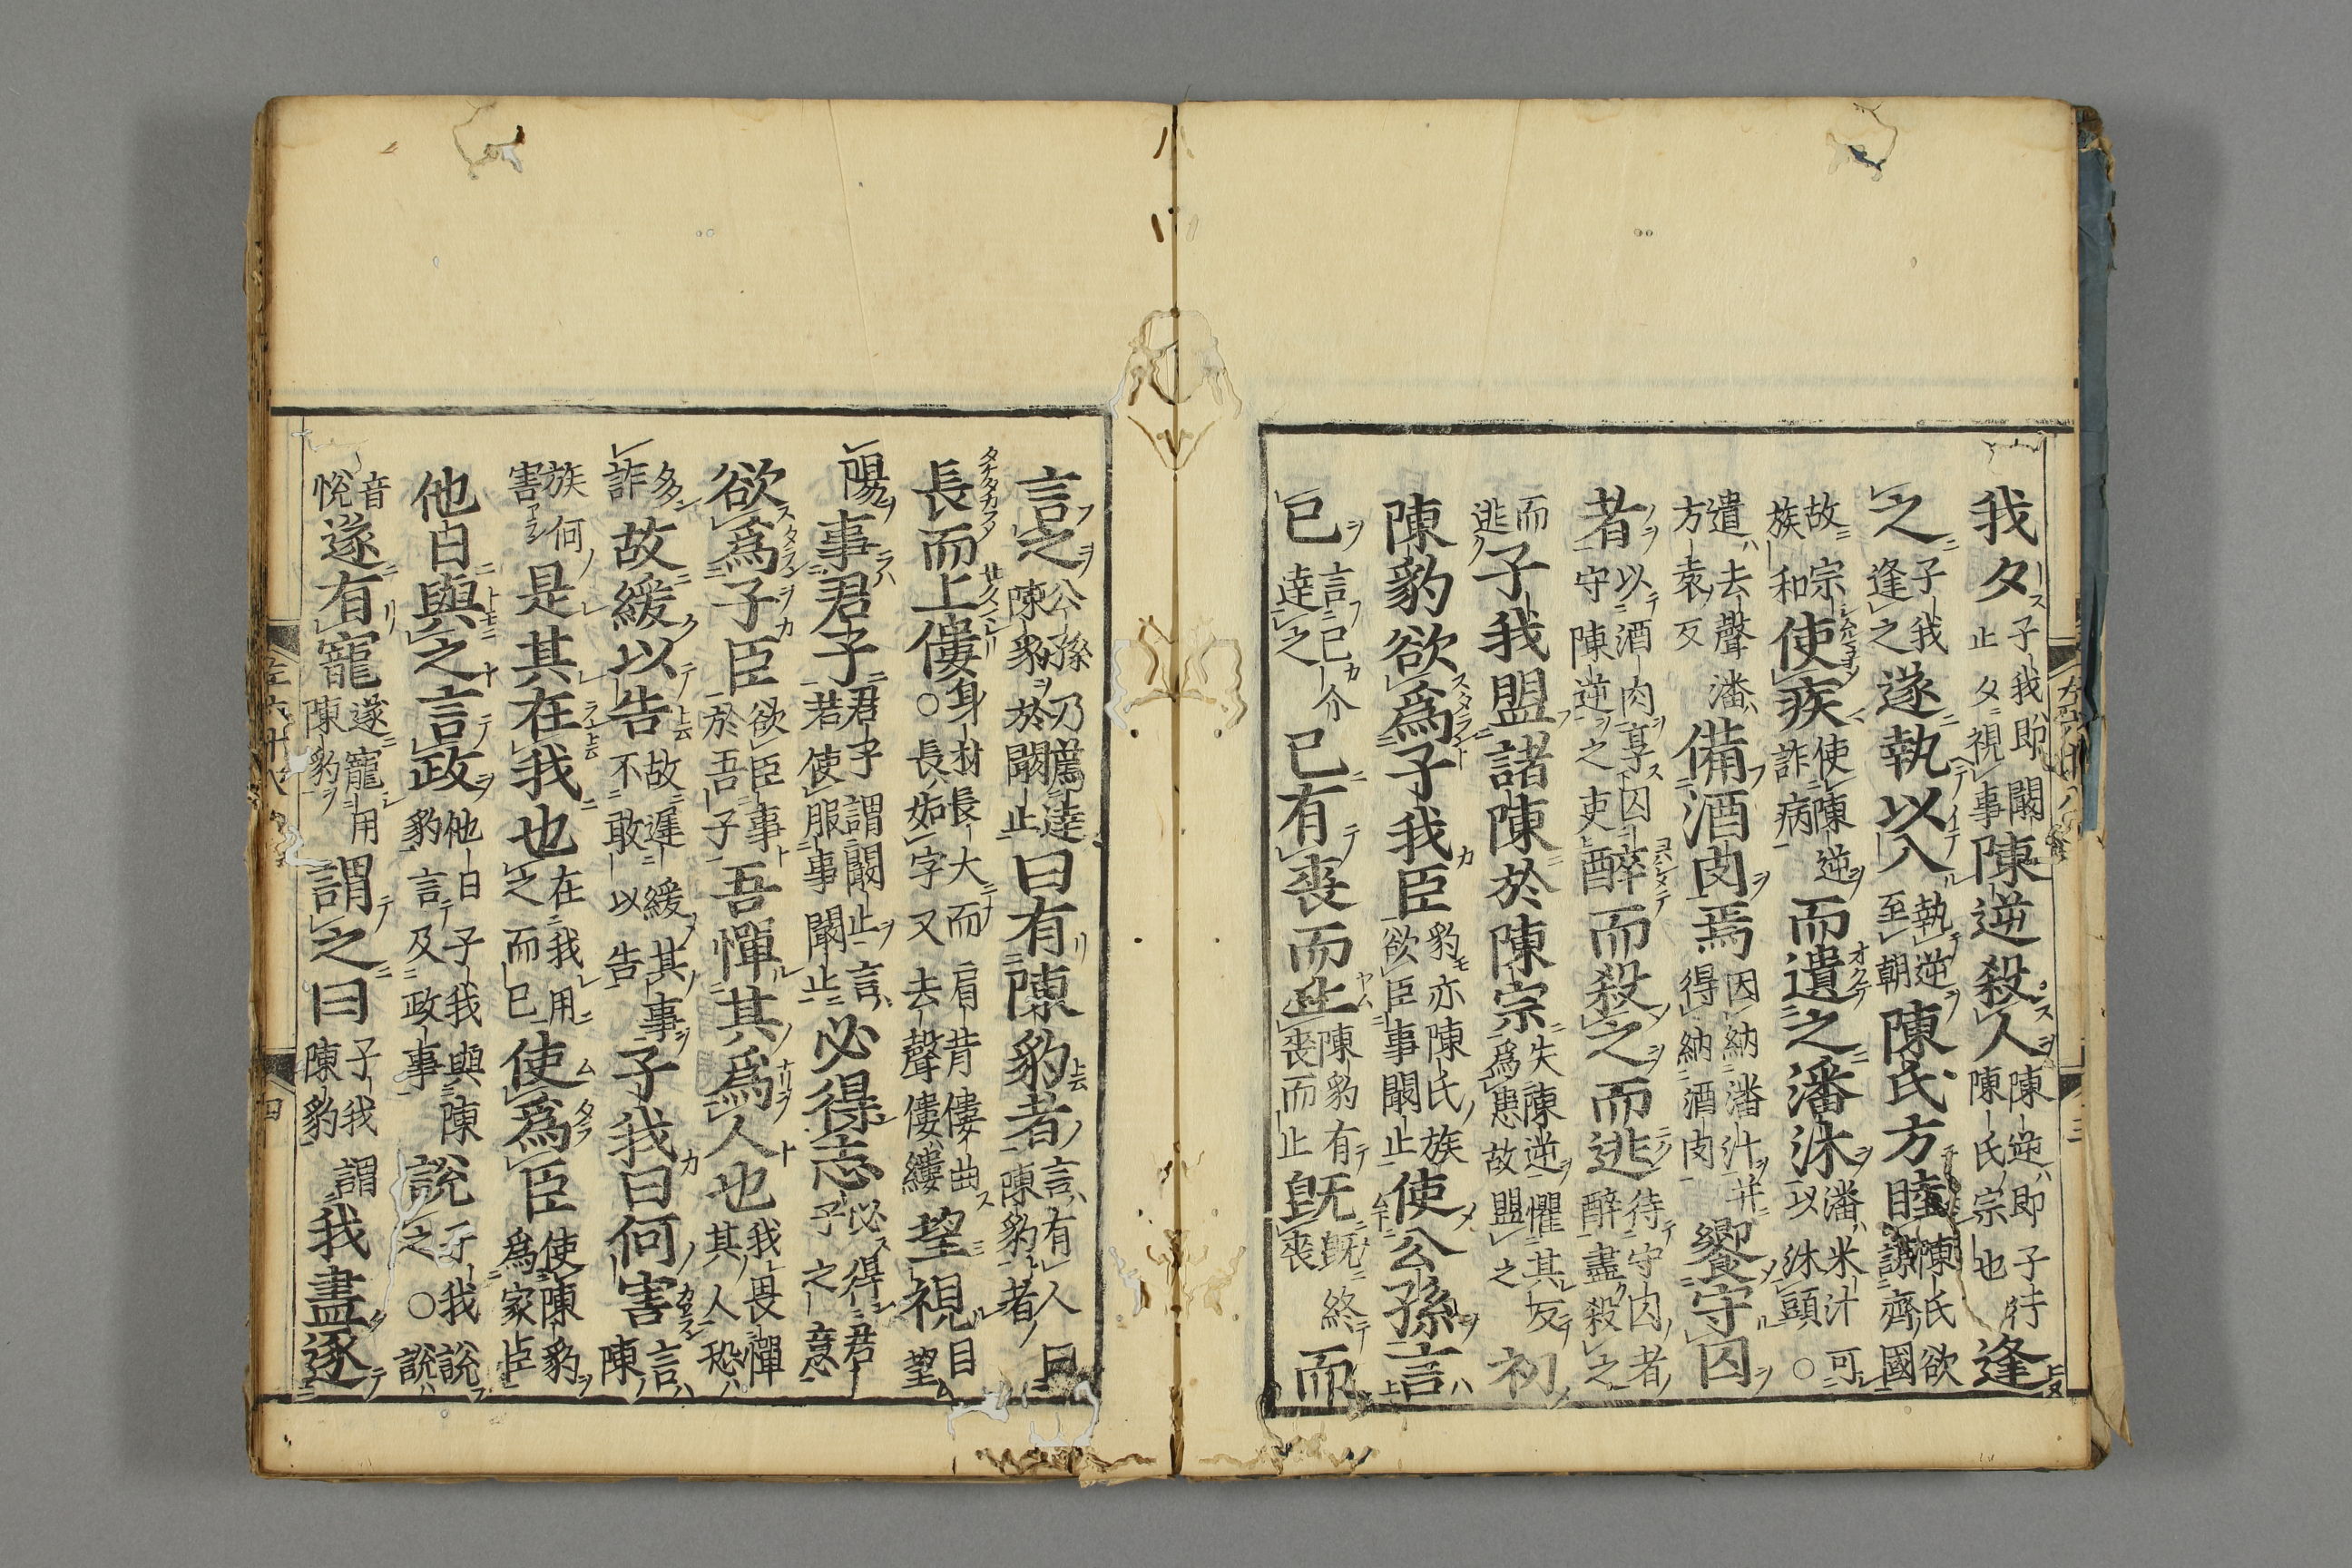 我夕子我即闞止夕視事陳逆殺人陳逆即子行陳氏宗也逢
之子我逢之遂執以入執逆至朝陳氏方睦陳氏欲謀齊國
故宗族和使疾使陳逆詐病而遺之潘沐潘米汁可以沐頭○
遺去聲潘方袁反備酒肉焉因納潘汁并得納酒肉饗守囚
者以酒肉享囚守陳逆之吏醉而殺之而逃待守囚者醉盡殺之
而逃子我盟諸陳於陳宗失陳逆懼其反為患故盟之初
陳豹欲為子我臣豹亦陳氏族欲臣事闞止使公孫言
已言已介達之已有喪而止陳豹有喪而止既既終喪而
言之公孫乃薦達陳豹於闞止曰有陳豹者言有人陳豹者
長而上僂○身材長大而肩背僂曲長如字又去聲僂縷望視目望
陽事君子君子謂闞止言若使服事闞止必得志必得君子之意
欲為子臣欲臣事於吾子吾憚其為人也我畏憚其人恐
多詐故緩以告故遲緩其事不敢以告子我曰何害言陳
族何害是其在我也在我用之而已使為臣使陳豹為家臣
他日與之言政他日子我與陳豹言及政事說子我說之○說
音悅遂有寵遂寵用陳豹謂之曰子我謂陳豹我盡逐
四